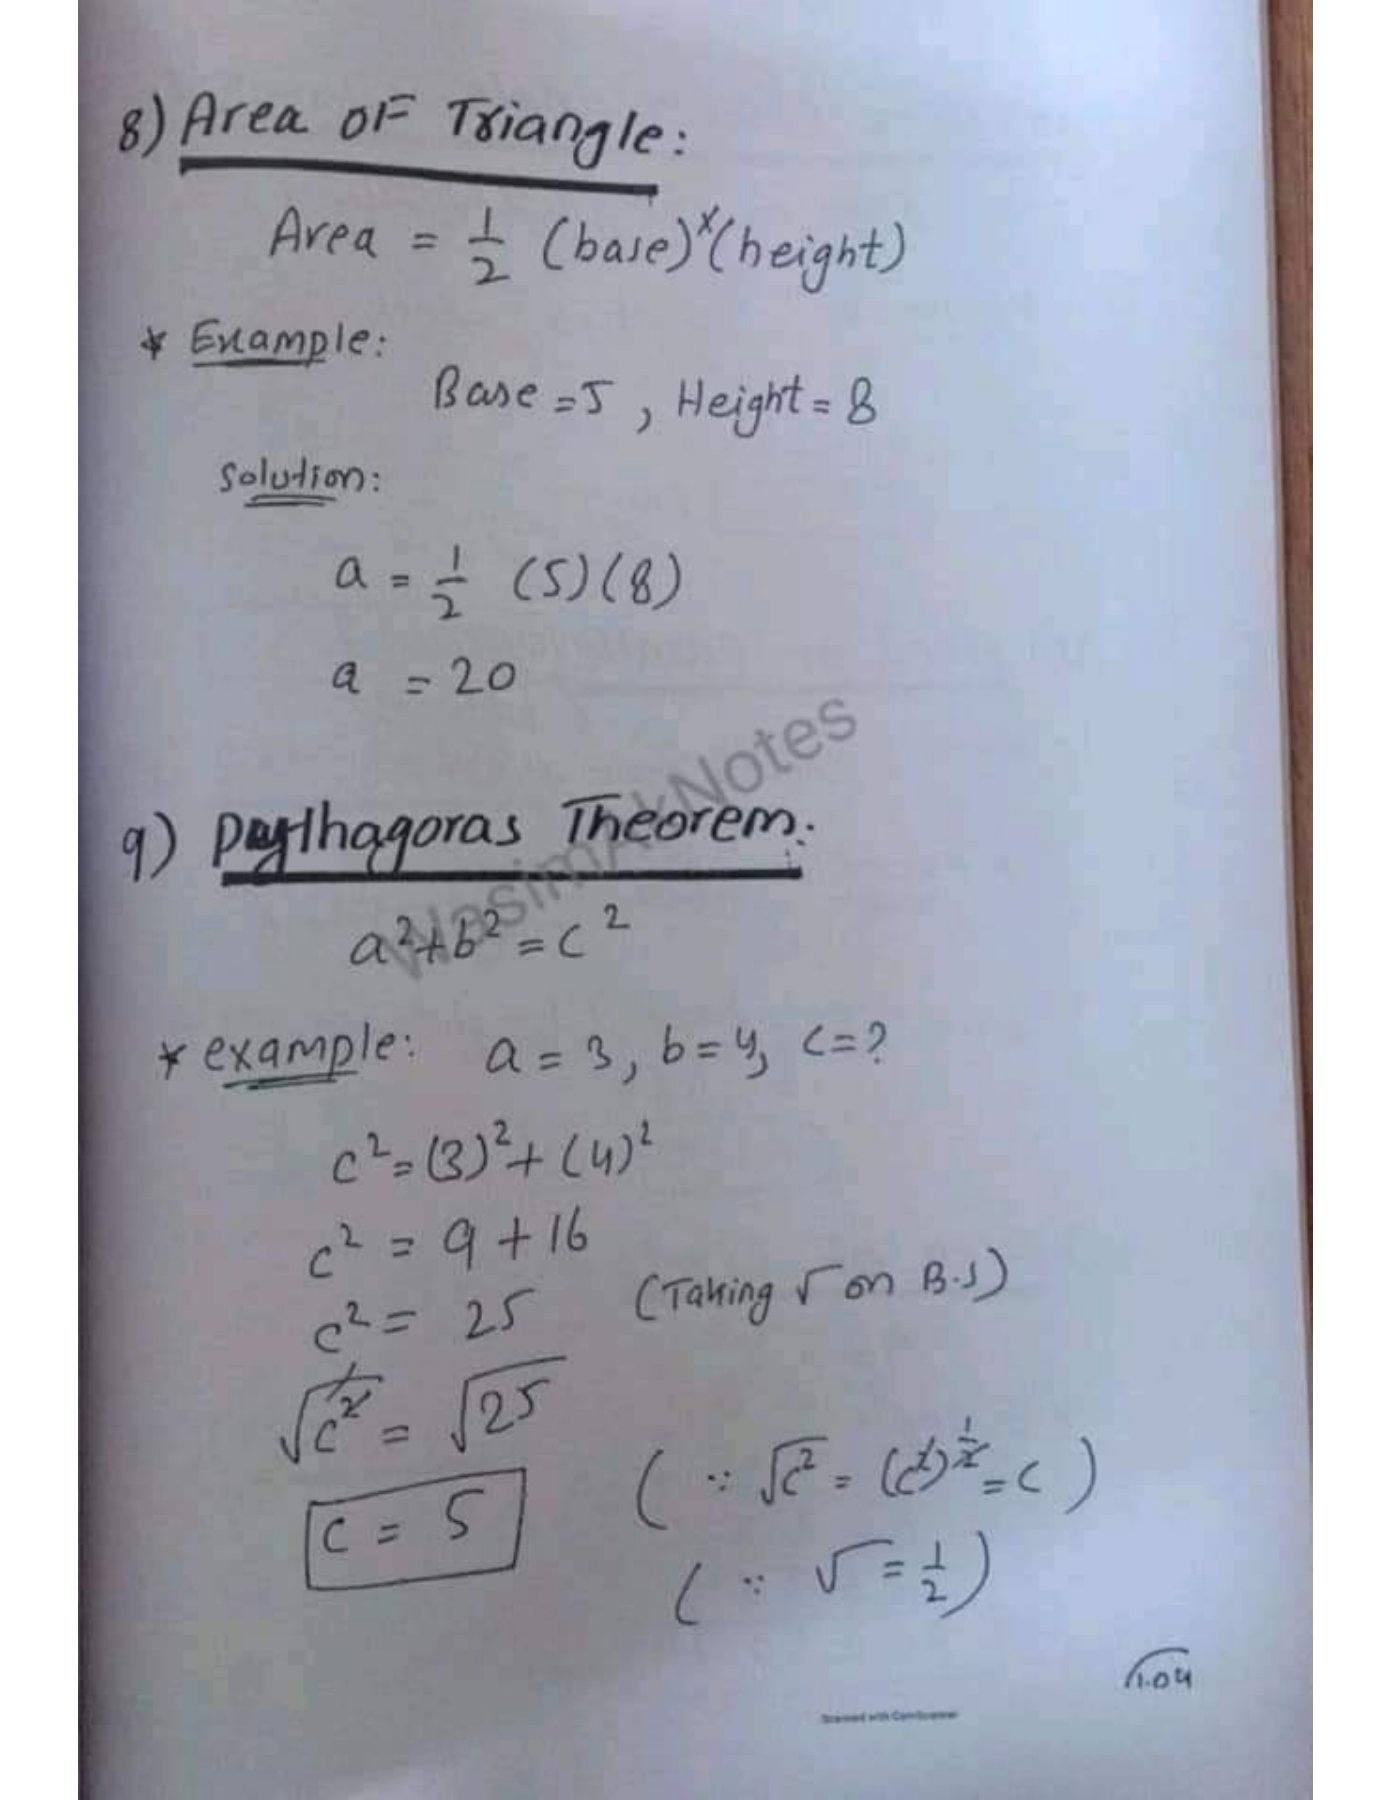 8) Area OF Triangle:
Area = 1/2 (base)x(height)
* Example:
Base = 5, Height = 8
Solution:
a = 1/2 (5)(8)
a = 20
WasimAkNotes
9) Pythagoras Theorem:
a²+b² = c²
* example: a = 3, b = 4, c = ?
c² = (3)² + (4)²
c² = 9 + 16
c² = 25 (Taking √ on B.S)
√c² = √25
c = 5 (∵ √c² = (c²)^1/2 = c)
(∵ √ = 1/2)
1.04
Scanned with CamScanner